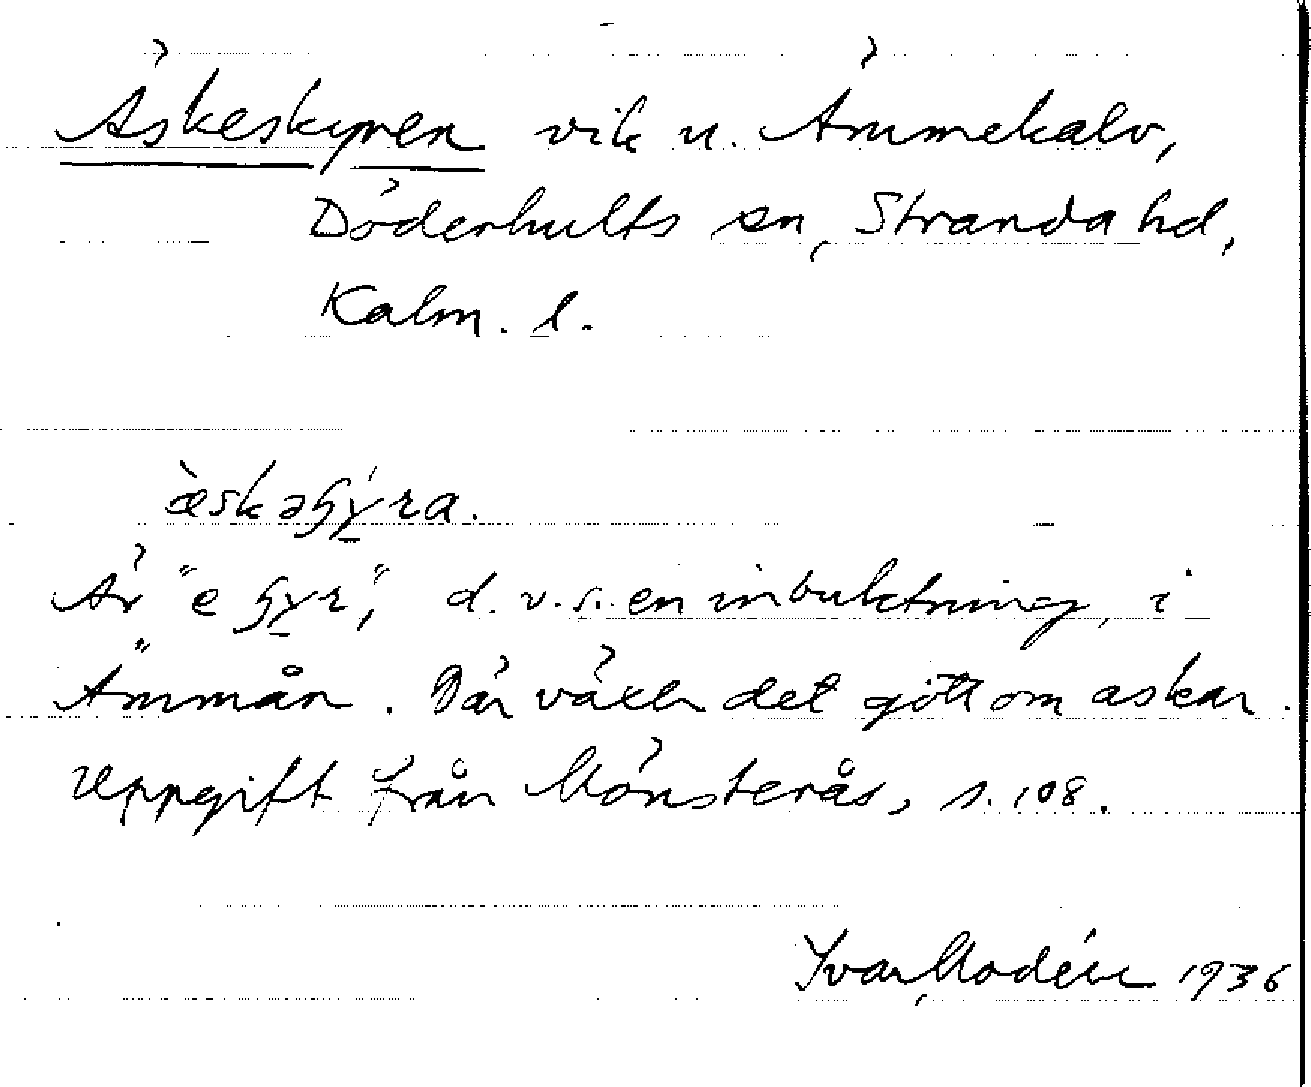 Äskeskyren vik n. Ämmekalv,
Döderhults sn, Stranda hd,
Kalm. l.
æ̀skəʃý̱ra.
Är "e ʃy̱r", d.v.s. en inbuktning, i
Ämmån. Där växer det gott om askar.
Uppgift från Mönsterås, s. 108.
Yvar Modéer 1936